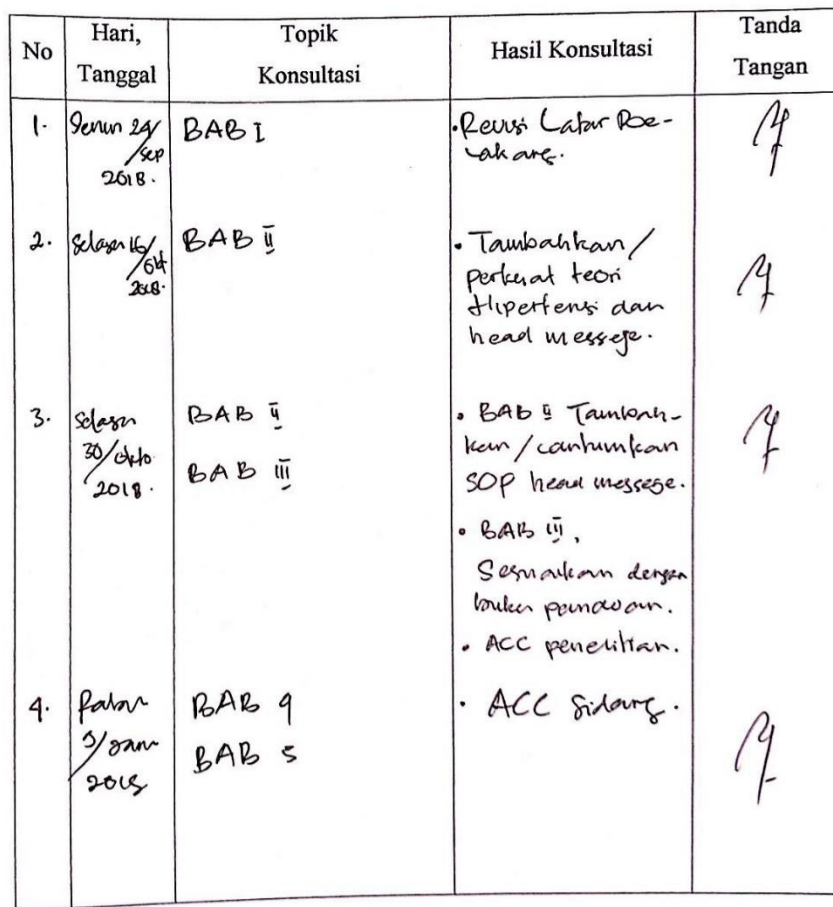 No
Hari,
Tanggal
Topik
Konsultasi
Hasil Konsultasi
Tanda
Tangan
1.
Senin 24/
sep
2018.
BAB I
• Revisi Latar Be-
lakang.
2.
Selasa 16/
okt
2018.
BAB II
• Tambahkan /
perkuat teori
Hipertensi dan
head messege.
3.
Selasa
30/okto
2018.
BAB II
BAB III
• BAB II Tambah-
kan / cantumkan
SOP head messege.
• BAB III,
Sesuaikan dengan
buku panduan.
• ACC penelitian.
4.
Rabu
/Janu
BAB 4
BAB 5
• ACC Sidang.